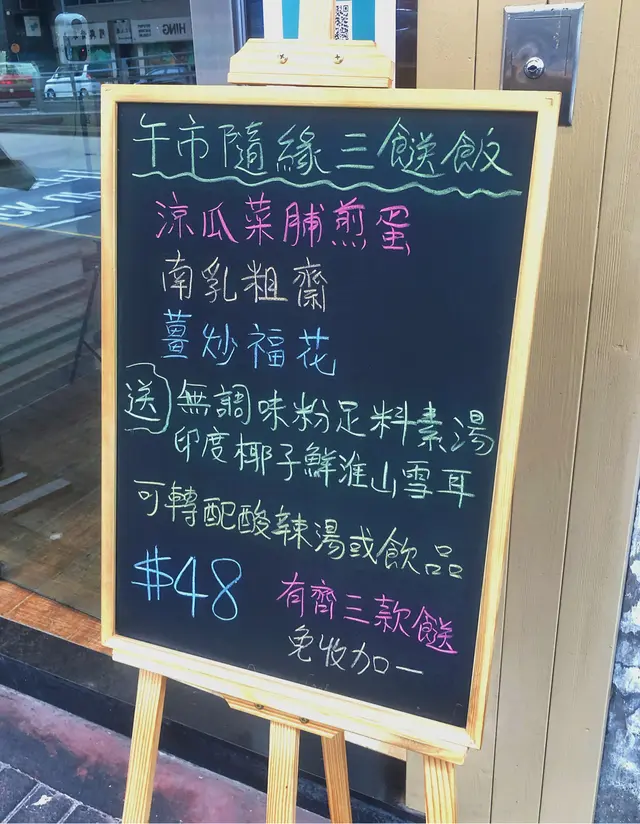 午市隨緣三餸飯
涼瓜菜脯煎蛋
南乳粗齋
薑炒福花
送 無調味粉足料素湯
印度椰子鮮淮山雪耳
可轉配酸辣湯或飲品
$48
有齊三款餸
免收加一